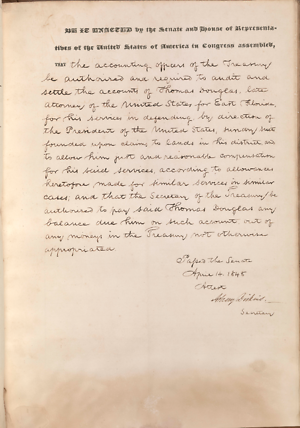 BE IT ENACTED by the Senate and House of Representa-
tives of the United States of America in Congress assembled,
THAT the accounting officers of the Treasury
be authorized and required to audit and
settle the accounts of Thomas Douglas, late
attorney of the United States for East Florida
for his services in defending by direction
of the President of the United States, sundry suits
founded upon claims to lands in his district and
to allow him just and reasonable compensation
for his said services, according to allowances
heretofore made for similar services in similar
cases, and that the Secretary of the Treasury be
authorized to pay said Thomas Douglas any
balance due him on such account out of
any moneys in the Treasury not otherwise
appropriated
Passed the Senate
April 14. 1848
Attest
Secretary